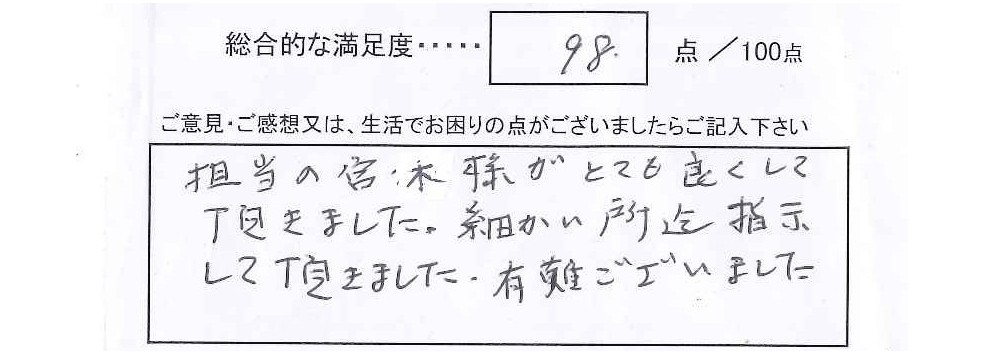 総合的な満足度・・・・・ 98. 点 ／100点
ご意見・ご感想又は、生活でお困りの点がございましたらご記入下さい
担当の宮木様がとても良くして
頂きました。細かい所迄指示
して頂きました。有難ございました